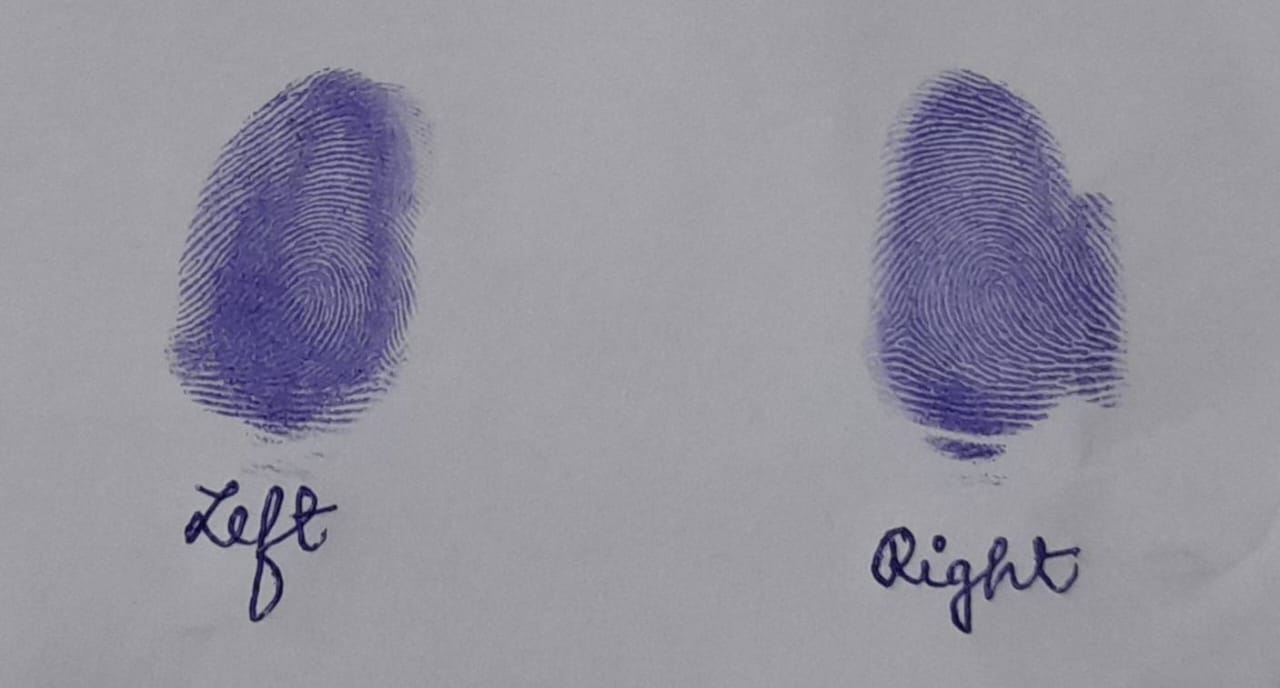 Left
Right